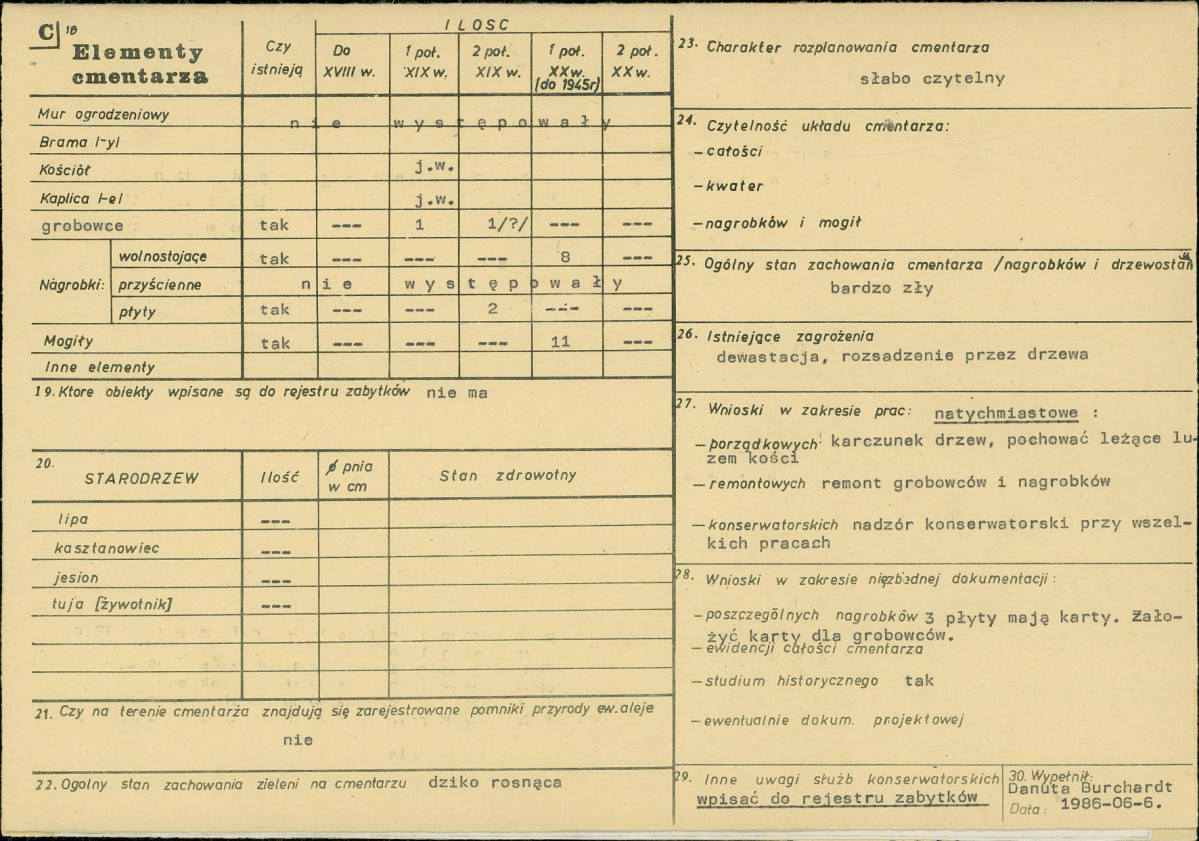 C 18
Elementy cmentarza
Czy istnieją
ILOSC
Do XVIII w.
1 poł. XIX w.
2 poł. XIX w.
1 poł. XX w. (do 1945r)
2 poł. XX w.
Mur ogrodzeniowy nie występowały
Brama /-y/
Kościół j.w.
Kaplica /-e/ j.w.
grobowce tak --- 1 1/?/ --- ---
Nagrobki:
wolnostojące tak --- --- --- 8 ---
przyścienne nie występowały
płyty tak --- --- 2 --- ---
Mogiły tak --- --- --- 11 ---
Inne elementy
19. Ktore obiekty wpisane są do rejestru zabytków nie ma
20.
STARODRZEW Ilość ø pnia w cm Stan zdrowotny
lipa ---
kasztanowiec ---
jesion ---
tuja [żywotnik] ---
21. Czy na terenie cmentarza znajdują się zarejestrowane pomniki przyrody ew. aleje
nie
22. Ogolny stan zachowania zieleni na cmentarzu dziko rosnąca
23. Charakter rozplanowania cmentarza
słabo czytelny
24. Czytelność układu cmentarza:
- całości
- kwater
- nagrobków i mogił
25. Ogólny stan zachowania cmentarza /nagrobków i drzewostan
bardzo zły
26. Istniejące zagrożenia
dewastacja, rozsadzenie przez drzewa
27. Wnioski w zakresie prac: natychmiastowe :
- porządkowych: karczunek drzew, pochować leżące lu-
zem kości
- remontowych remont grobowców i nagrobków
- konserwatorskich nadzór konserwatorski przy wszel-
kich pracach
28. Wnioski w zakresie niezbędnej dokumentacji:
- poszczególnych nagrobków 3 płyty mają karty. Zało-
żyć karty dla grobowców.
- ewidencji całości cmentarza
- studium historycznego tak
- ewentualnie dokum. projektowej
29. Inne uwagi służb konserwatorskich
wpisać do rejestru zabytków
30. Wypełnił:
Danuta Burchardt
Data: 1986-06-6.